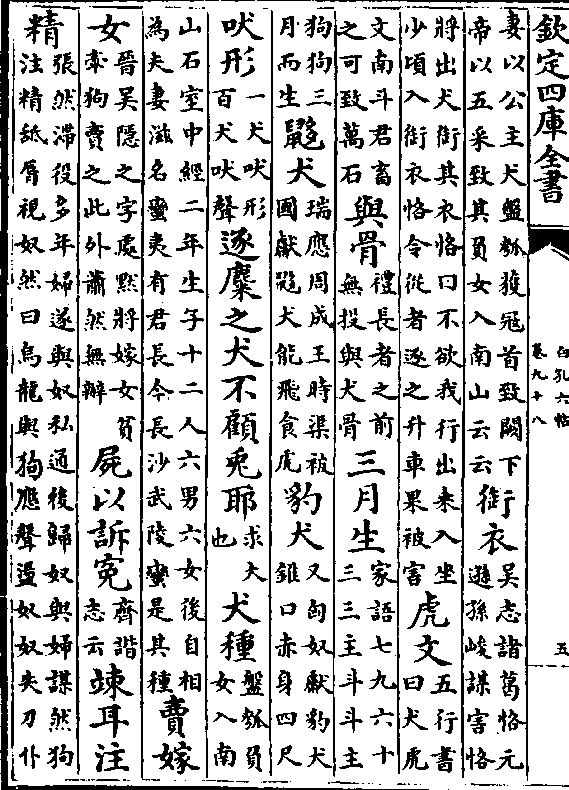 欽定四庫全書
白孔六帖
卷九十八
五
妻以公主犬盤瓠獲冠首致闕下
帝以五采致其員女入南山云云
銜衣
吳志諸葛恪元
遜孫峻謀害恪
將出犬銜其衣恪曰不欲我行出来入坐
少頃入銜衣恪令從者逐之升車果被害
虎文
五行書
曰犬虎
文南斗君畜
之可致萬石
與骨
禮長者之前
無投與犬骨
三月生
家語七九六十
三三主斗斗主
狗狗三
月而生
鼩犬
瑞應周成王時渠被
國獻鼩犬能飛食虎
豹犬
又匈奴獻豹犬
錐口赤身四尺
吠形
一犬吠形
百犬吠聲
逐麋之犬不顧兎耶
求大
也
犬種
盤瓠員
女入南
山石室中經二年生子十二人六男六女後自相
為夫妻滋名蠻夷有君長今長沙武陵蠻是其種
賣嫁
女
晉吳隠之字處黙將嫁女貧
牽狗賣之此外蕭然無辦
屍以訴寃
齊諧
志云
竦耳注
精
張然滯役多年婦遂與奴私通後歸奴與婦謀然狗
注精舐脣視奴然曰烏龍與狗應聲盪奴奴失刀仆